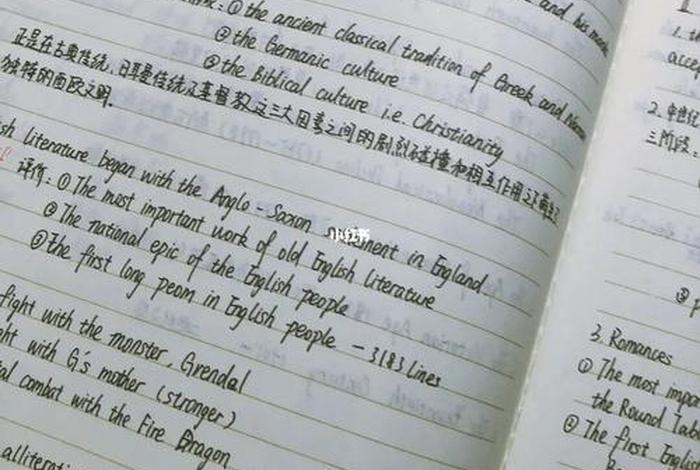 : ① the ancient classical tradition of Greek and
② the Germanic culture
③ the Biblical culture i.e. Christianity
正是在古典传统、日耳曼传统及基督教这三大因素之间的剧烈碰撞和相互作用之下
独特的西欧文明.
sh Literature began with the Anglo-Saxon in England.
评价: ① The most important work of old English Literature
② The national epic of the English people
③ the first long peom in English people — 3183 Lines
fight with the monster, Grendal
ht with G's mother (stronger)
al combat with the Fire Dragon
alliterati
小红书
and his
1. th
acce
2. 中世纪
三阶段:
③
3. Romances
① The most impor
the Round Tab
② The first Engli